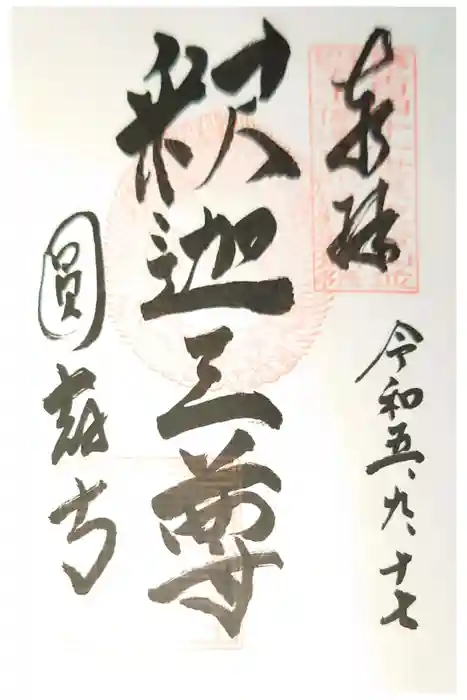 奉拝
令和五、九、十七
釈迦三尊
圓 寺